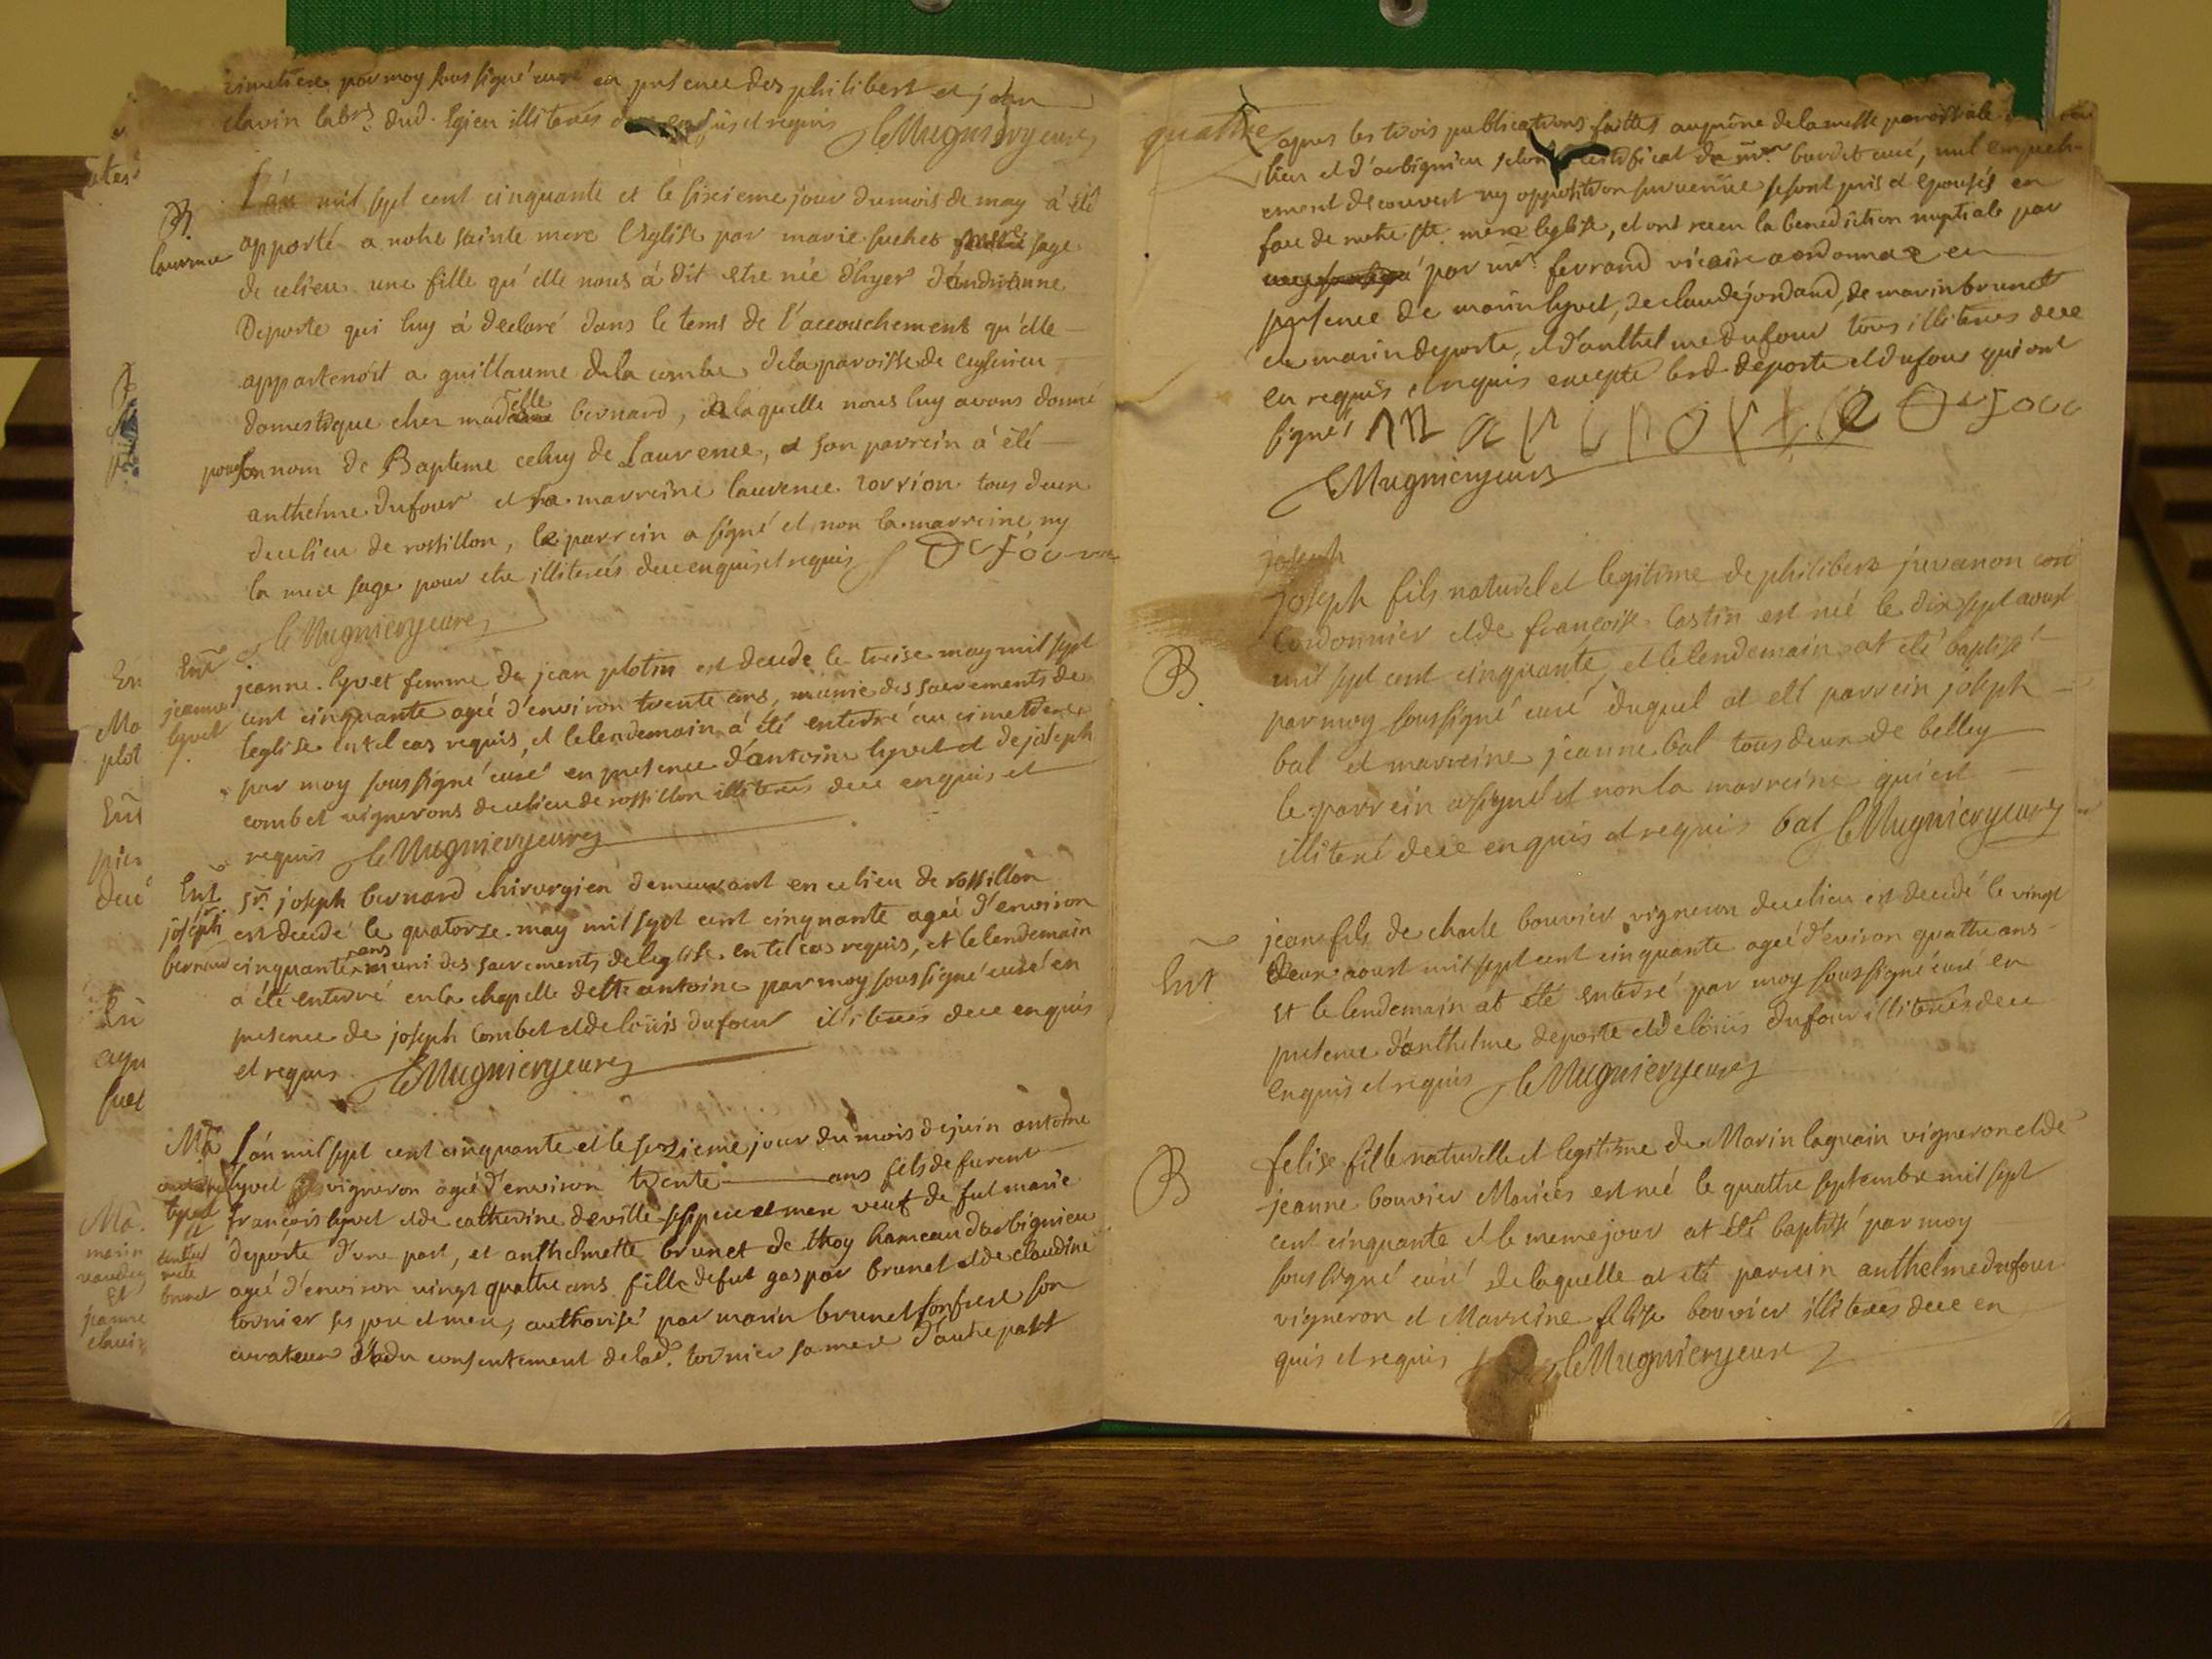 cimetiere par moy soussigné curé en presence des philibert et jean
clavin lab.rs dud. Egieu illiterés enquis et requis LeMugnierycuré
B.
laurence
L'an mil sept cent cinquante et le sixieme jour du mois de may à été
apporté a notre sainte mere l'eglise par marie suchet mere sage
de ce lieu une fille qu'elle nous à dit etre née d'hyer d'andrianne
Deporte qui luy à declaré dans le tems de l'accouchement qu'elle
appartenoit a guillaume dela combe dela paroisse de
domestique chez madelle bernard, a laquelle nous luy avons donné
pour son nom de Bapteme celuy de Laurence, et son parrein à été
anthelme Dufour et sa marreine laurence tous deux
de ce lieu de rossillon, le parrein a signé et non la marreine ny
la mere sage pour etre illiterées de ce enquis et requis Dufour
leMugnierycuré
Ent
jeanne
lyvet
jeanne lyvet femme de jean plotin est decede le treise may mil sept
cent cinquante ageé d'environ trente ans, munie des sacrements de
leglise en tel cas requis, et le lendemain à été enterré au cimetiere
par moy soussigné curé en presence d'antoine lyvet et de joseph
combet vignerons de ce lieu de rossillon illiterés de ce enquis et
requis leMugnierycuré
Ent
joseph
bernard
Sr. joseph bernard chirurgien demeurant en ce lieu de rossillon
est decedé le quatorze may mil sept cent cinquante ageé d'environ
cinquante ans muni des sacrements de leglise en tel cas requis, et le lendemain
à été enterré en la chapelle de st antoine par moy soussigné curé en
presence de joseph Combet et de loüis dufour illiterés de ce enquis
et requis leMugnierycuré
Ma
lyvet
et
anthel
mete
brunet
L'an mil sept cent cinquante et le sezieme jour du mois de juin antoine
lyvet vigneron ageé d'environ trente ans fils de furent
françois lyvet et de catherine deville ses pere et mere veuf de fut marie
deporte d'une part, et anthelmette brunet de thoy hameau d'arbignieu
ageé d'environ vingt quattre ans fille de fut gaspar brunet et de claudine
tornier ses pere et mere, authorisé par marin brunet son frere son
curateur et du consentement de lad. tornier sa mere d'autre part
quattre
apres les trois publications faittes au prône de la messe paroissiale
lieu et d'arbignieu selon certificat de mr. burdet curé, nul empech-
ement decouvert ny opposition survenüe se sont pris et epousés en
face de notre ste. mere leglise, et ont recu la benediction nuptiale par
par mr. ferrand vicaire a ordonnaz en
presence de marin lyvet, de claude jordand, de marin brunet
de marin deporte, et d'anthelme dufour tous illiteres de ce
enquis et requis excepte led deporte et dufour qui ont
signé Dufour
leMugnierycuré
joseph
B
joseph fils naturel et legitime de philibert juvanon
Cordonnier et de francoise Castin est né le dix sept aoust
mil sept cent cinquante, et le lendemain at été baptisé
par moy soussigné curé duquel at eté parrein joseph
bal et marreine jeanne bal tous deux de belley
le parrein a signé et non la marreine qui est
illiteré de ce enquis et requis bal leMugnierycuré
Ent
jean fils de charle bouvier vigneron de ce lieu est decedé le vingt
deux aoust mil sept cent cinquante ageé d'eviron quattre ans
et le lendemain at été enterré par moy soussigné curé en
presence d'anthelme deporte et de loüis dufour illiterés de ce
enquis et requis leMugnierycuré
B
felise fille naturelle et legitime de Marin laguain vigneron et de
jeanne bouvier Mariées est né le quattre septembre mil sept
cent cinquante et le meme jour at été baptisé par moy
soussigné curé de laquelle at eté parrein anthelme dufour
vigneron et Marreine felise bouvier illiterés de ce en
quis et requis leMugnierycuré